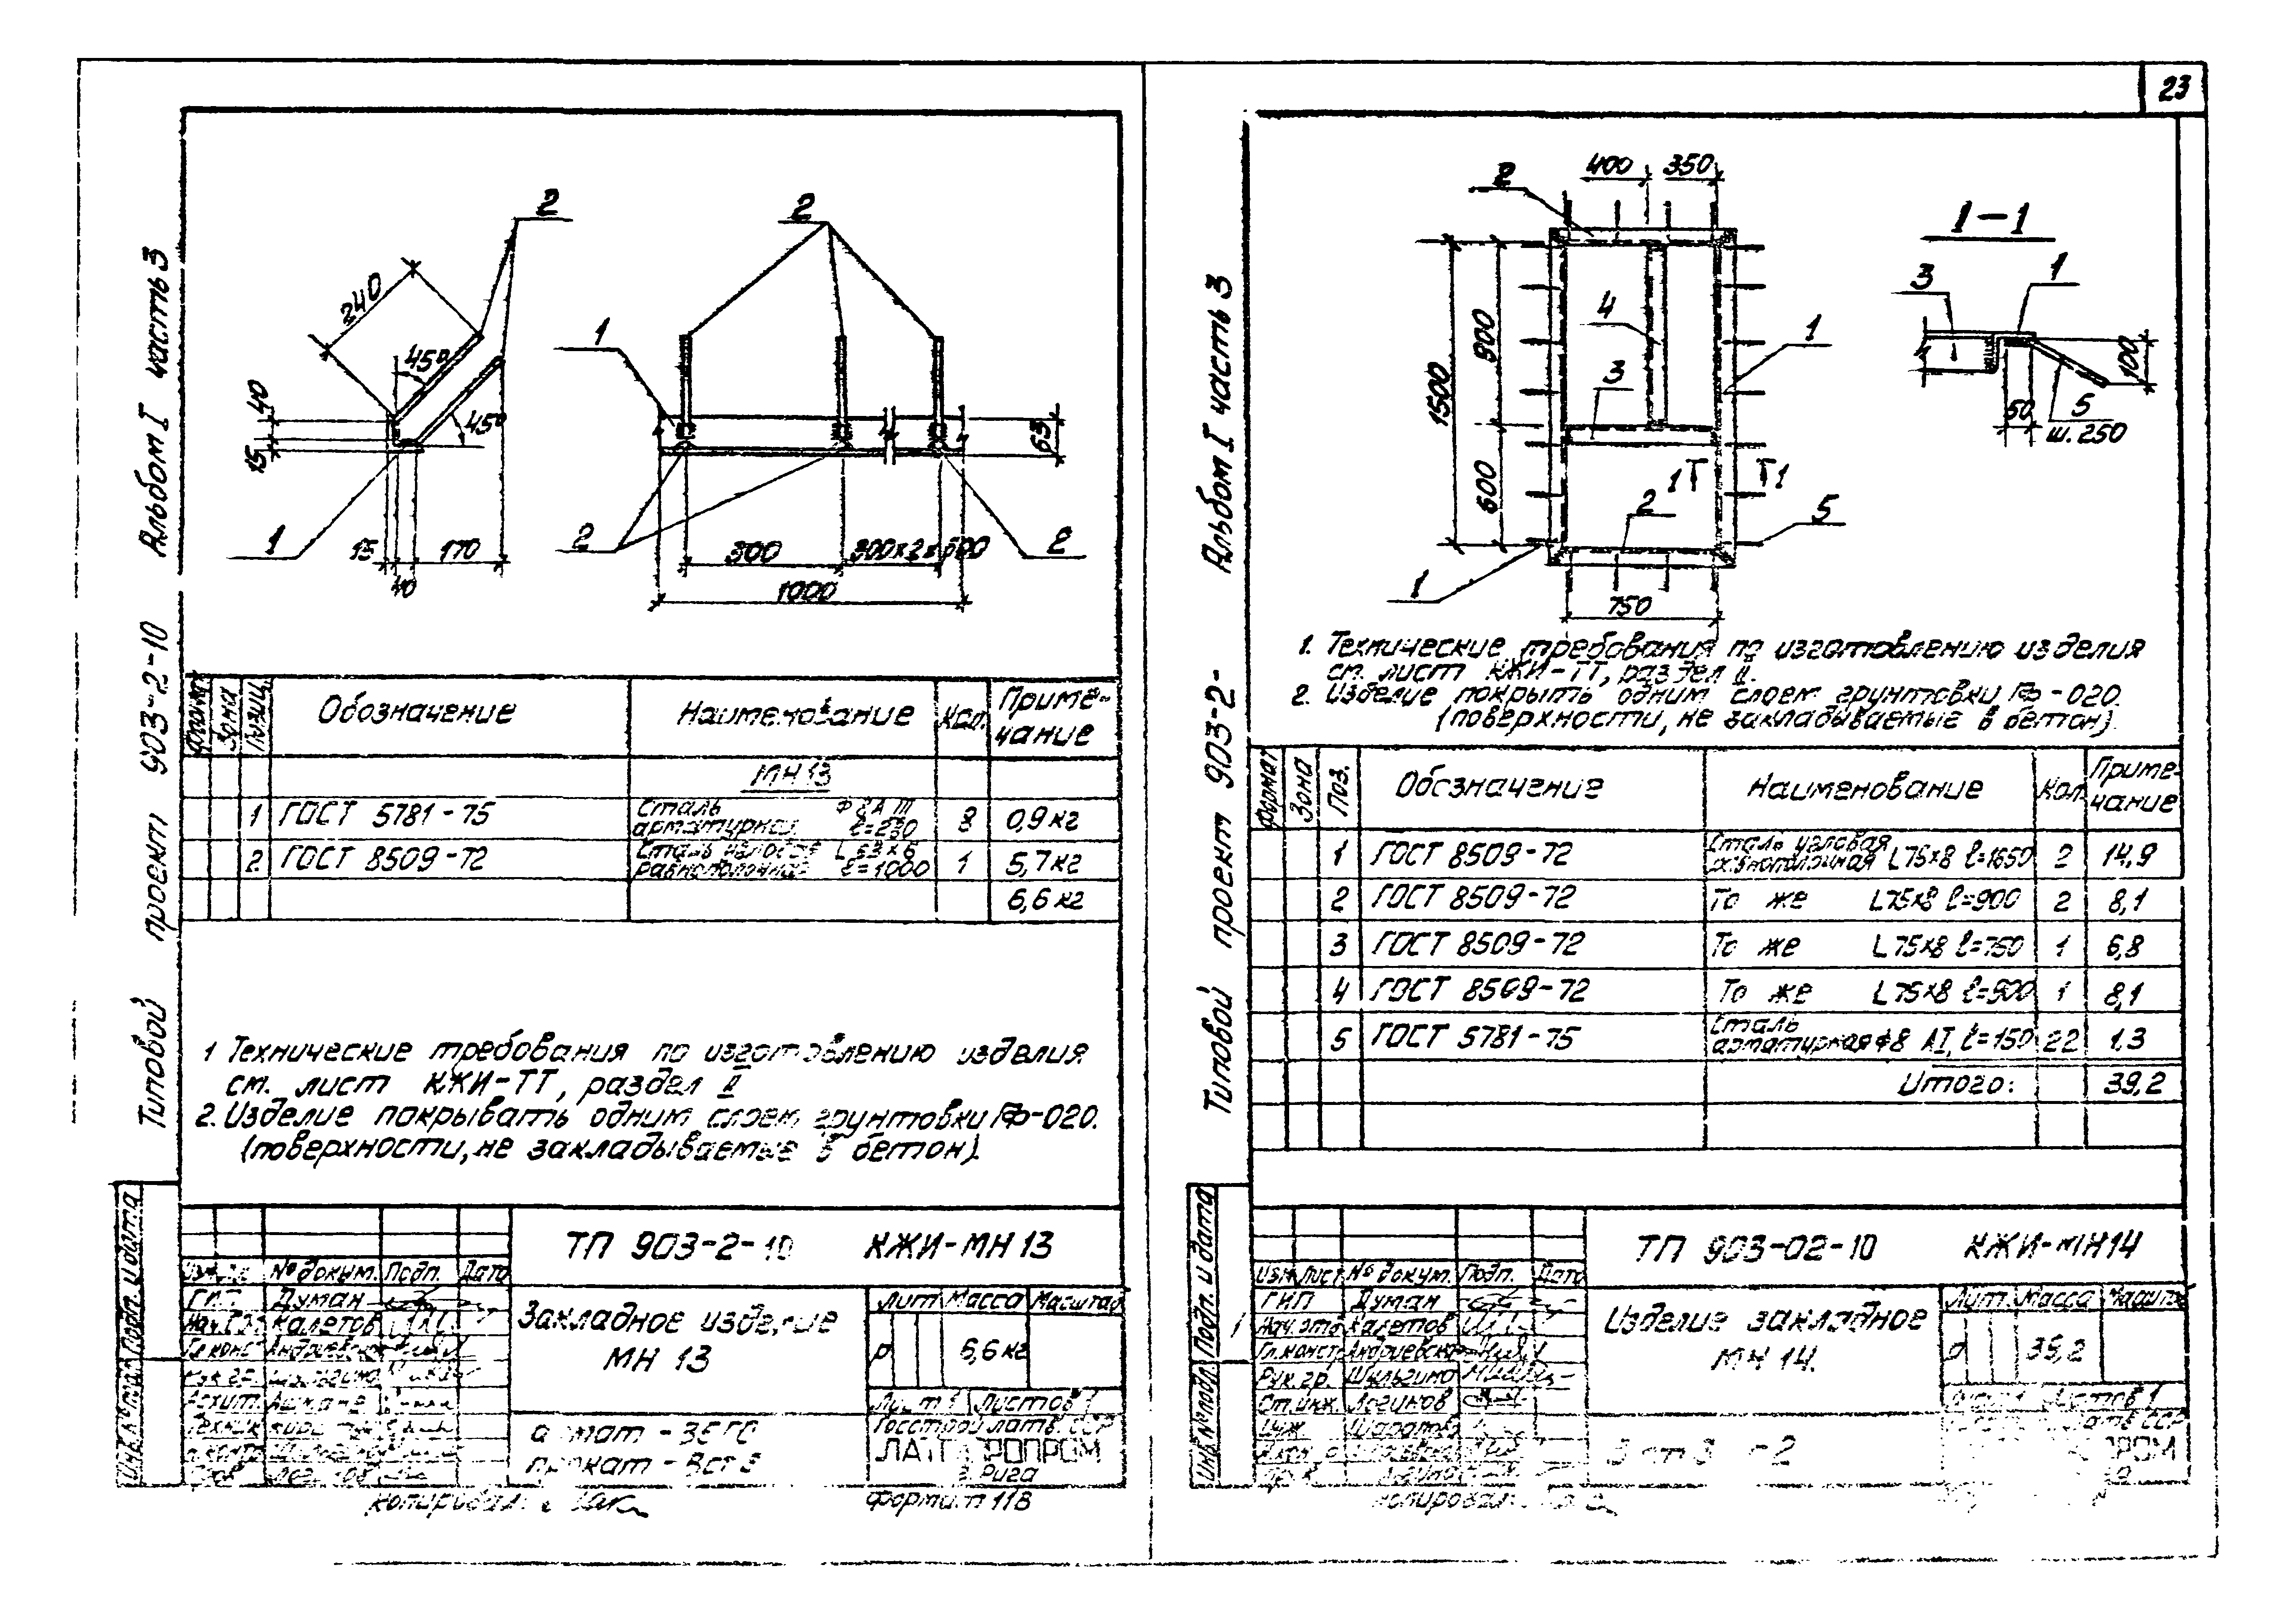 23
Типовой проект 903-2-10 Альбом I часть 3
2
2
240
45°
1
40
45°
15
63
1
2
2
15
170
300
40
1000
Формат
Зона
Позиц.
Обозначение
Наименование
Кол.
Приме-
чание
МН 13
1 ГОСТ 5781-75
Сталь Ф8АIII
арматурная
8 0,9 кг
2 ГОСТ 8509-72
Сталь L 63×6
равнополочная ℓ=1000
1 5,7 кг
6,6 кг
1 Технические требования по изготовлению изделия
см. лист КЖИ-ТТ, раздел II
2. Изделие покрывать одним слоем грунтовки ГФ-020.
(поверхности, не закладываемые в бетон).
ТП 903-2-10 КЖИ-МН 13
№ докум. Подп. Дата
ГИП Думан
Калетов
Закладное изделие
МН 13
Лит Масса Масштаб
р 6,6 кг
Лист 1 Листов 1
Госстрой Латв. ССР
г. Рига
Подп. и дата
копировал
формат 11В
Типовой проект 903-2- Альбом I часть 3
400 350
2
I-I
3
1
4
1
900
3
100
1500
50
5
ш. 250
600
1 1
2
5
1
750
1. Технические требования по изготовлению изделия
см. лист КЖИ-ТТ, раздел II.
2. Изделие покрыть одним слоем грунтовки ГФ-020.
(поверхности, не закладываемые в бетон).
Формат
Зона
Поз.
Обозначение
Наименование
Кол.
Приме-
чание
1 ГОСТ 8509-72
Сталь угловая
равнополочная L75×8 ℓ=1650
2 14,9
2 ГОСТ 8509-72 То же L75×8 ℓ=900 2 8,1
3 ГОСТ 8509-72 То же L75×8 ℓ=750 1 6,8
4 ГОСТ 8509-72 То же L75×8 ℓ=900 1 8,1
5 ГОСТ 5781-75
Сталь
арматурная ф8 АI, ℓ=150
22 1,3
Итого: 39,2
ТП 903-02-10 КЖИ-МН14
Изм Лист № докум. Подп. Дата
ГИП Думан
Нач. отд Калетов
Рук. гр. Шульгина
Ст. инж. Логинов
Изделие закладное
МН 14.
Лит. Масса
р 39,2
Подп. и дата
Инв. № подл.
копировал